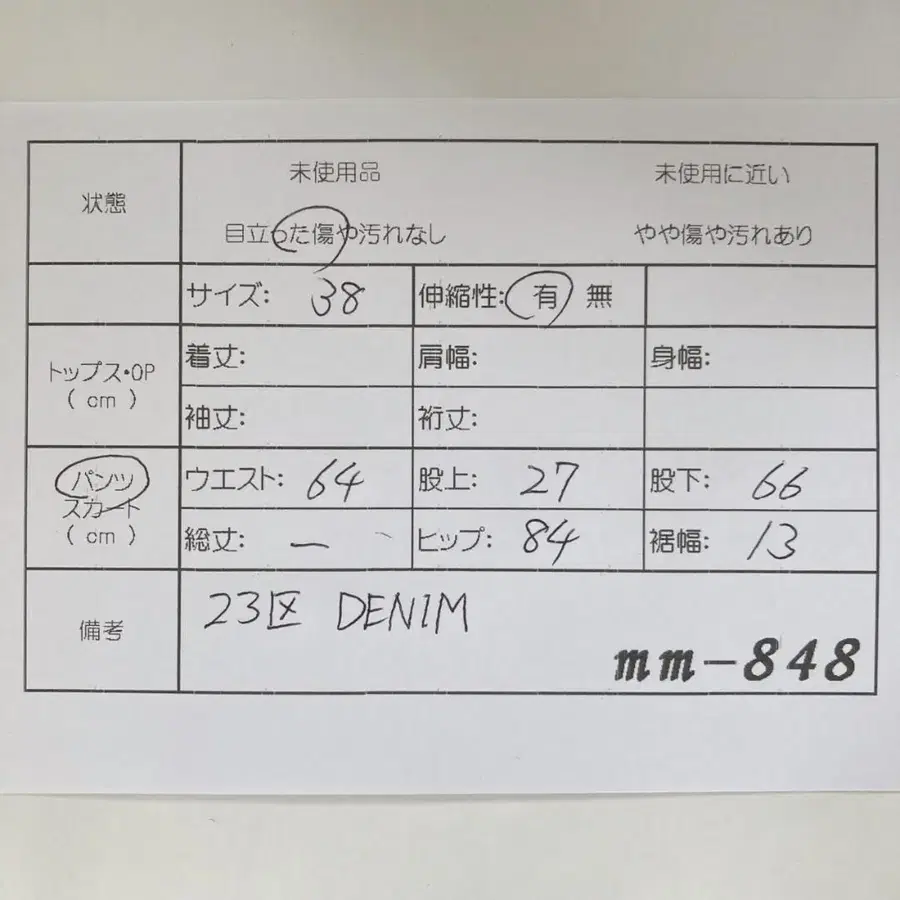 状態
未使用品 未使用に近い
目立った傷や汚れなし やや傷や汚れあり
サイズ: 38 伸縮性: 有 無
トップス・OP
( cm )
着丈: 肩幅: 身幅:
袖丈: 裄丈:
パンツ
スカート
( cm )
ウエスト: 64 股上: 27 股下: 66
総丈: ー ヒップ: 84 裾幅: 13
備考
23区 DENIM
mm-848